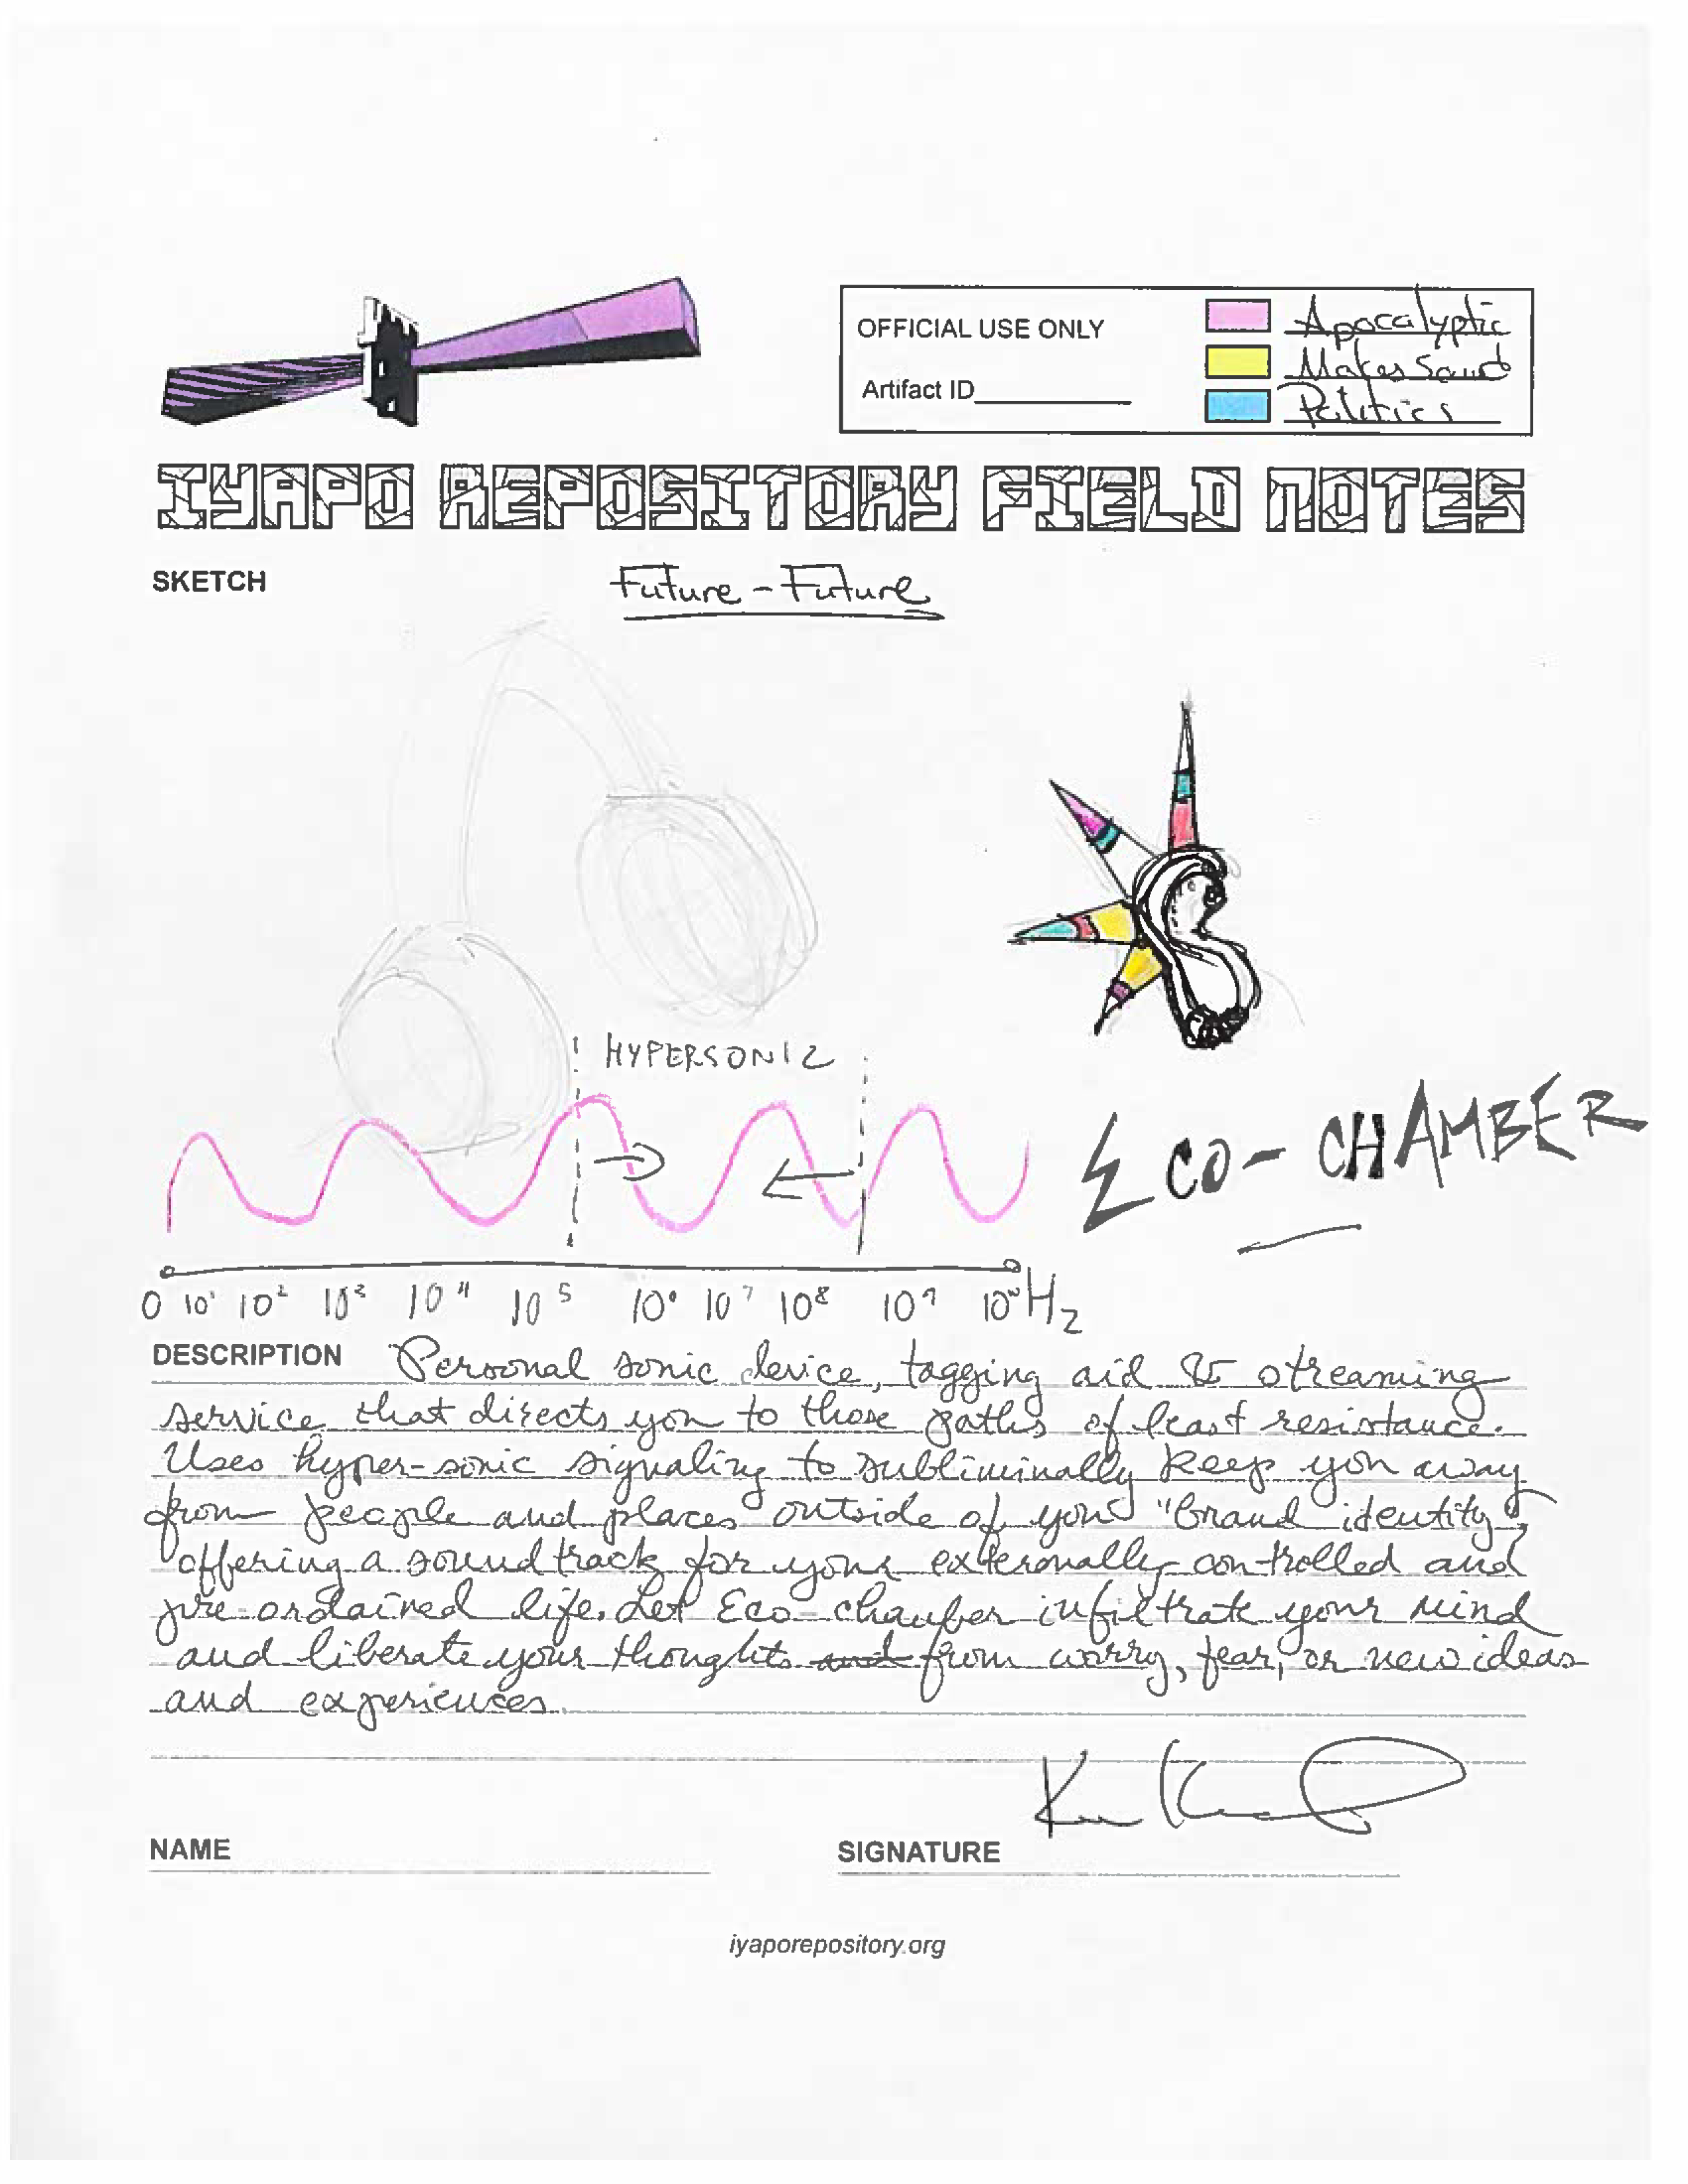 OFFICIAL USE ONLY
Artifact ID
Apocalyptic
Makes Sound
Politics
IYAPO REPOSITORY FIELD NOTES
SKETCH
Future - Future
HYPERSONIC
ECO-CHAMBER
0 10¹ 10² 10³ 10⁴ 10⁵ 10⁶ 10⁷ 10⁸ 10⁹ 10¹⁰ Hz
DESCRIPTION Personal sonic device, tagging aid & streaming
service that directs you to those paths of least resistance.
Uses hyper-sonic signaling to subliminally keep you away
from people and places outside of your "brand identity",
offering a soundtrack for your externally controlled and
pre-ordained life. Let Eco-chamber infiltrate your mind
and liberate your thoughts and from worry, fear, or new ideas
and experiences.
NAME
SIGNATURE
iyaporepository.org